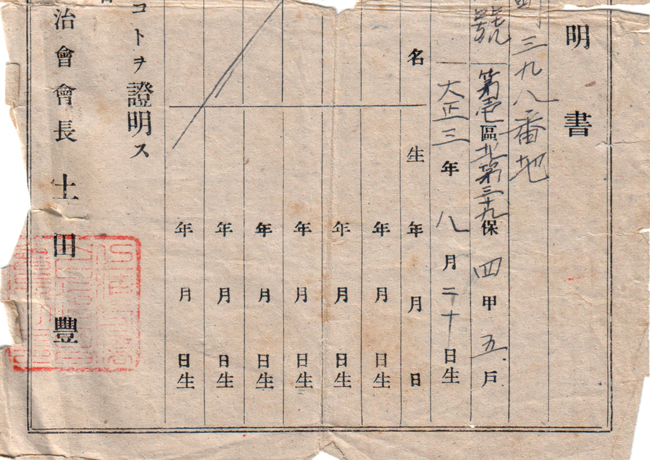 明書
三九八番地
號 第壱區北第三十九保四甲五戶
大正三年八月二十日生
名 生年月日
年月日生
年月日生
年月日生
年月日生
年月日生
年月日生
コトヲ證明ス
治會會長 土田豐